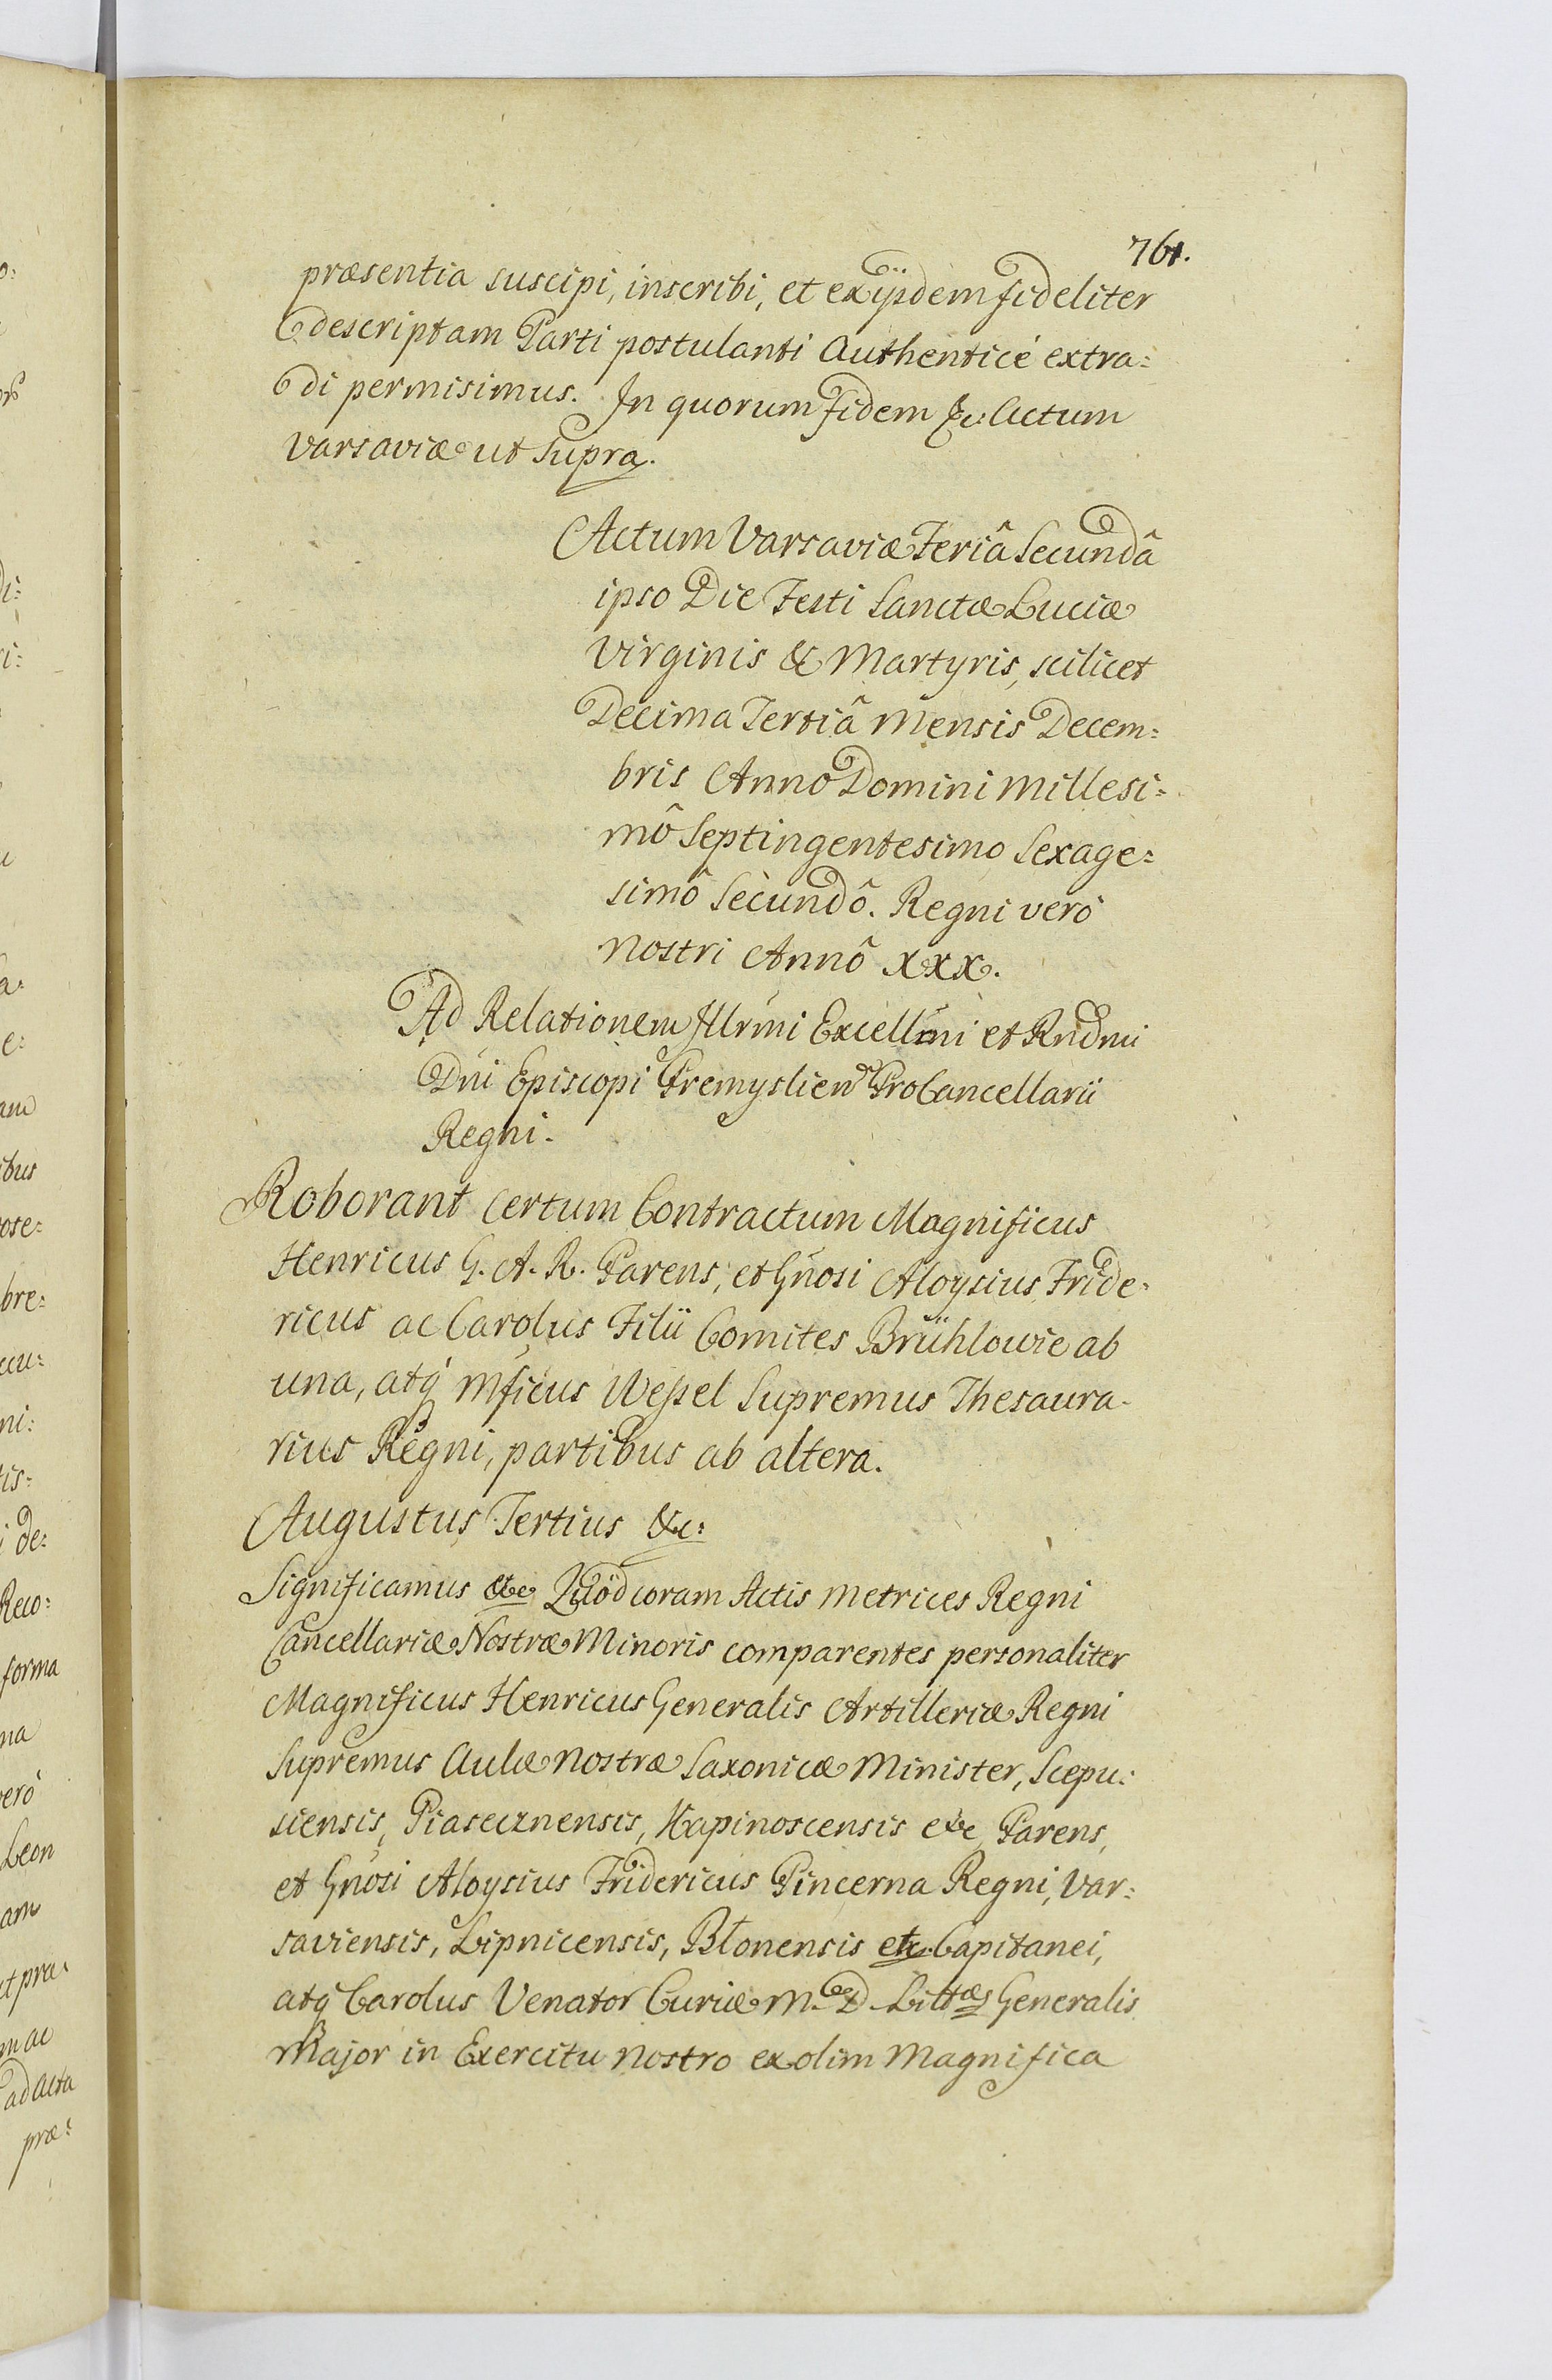 761.
præsentia suscipi, inscribi, et exijsdem fideliter
descriptam Parti postulanti Authenticè extra=
di permisimus. In quorum fidem &c: Actum
Varsaviæ ut supra.
Actum Varsaviæ Feriâ Secundâ
ipso Die Festi Sanctæ Luciæ
Virginis & Martyris, scilicet
Decima Tertiâ Mensis Decem=
bris Anno Domini Millesi=
mô Septingentesimo Sexage=
simô Secundô. Regni verò
Nostri Annô XXX.
Ad Relationem Illrmi Excellmi et Rndmi
Dni Episcopi Premyslien ProCancellarii
Regni.
Roborant certum Contractum Magnificus
Henricus G. A. R. Parens, et Gnosi Aloysius Fride=
ricus ac Carolus Filii Comites Brühlowie ab
una, atq̃ Mficus Wessel Supremus Thesaura=
rius Regni, partibus ab altera.
Augustus Tertius &c:
Significamus &c Quòd coram Actis Metrices Regni
Cancellariæ Nostræ Minoris comparentes personaliter
Magnificus Henricus Generalis Artilleriæ Regni
Supremus Aulæ Nostræ Saxonicæ Minister, Scepu=
siensis, Piasecznensis, Kapinoscensis etc Parens,
et Gnosi Aloysius Fridericus Pincerna Regni, Var=
saviensis, Lipnicensis, Błonensis etc. Capitanei,
atq̃ Carolus Venator Curiæ M. D. Littæs Generalis
Major in Exercitu Nostro ex olim Magnifica